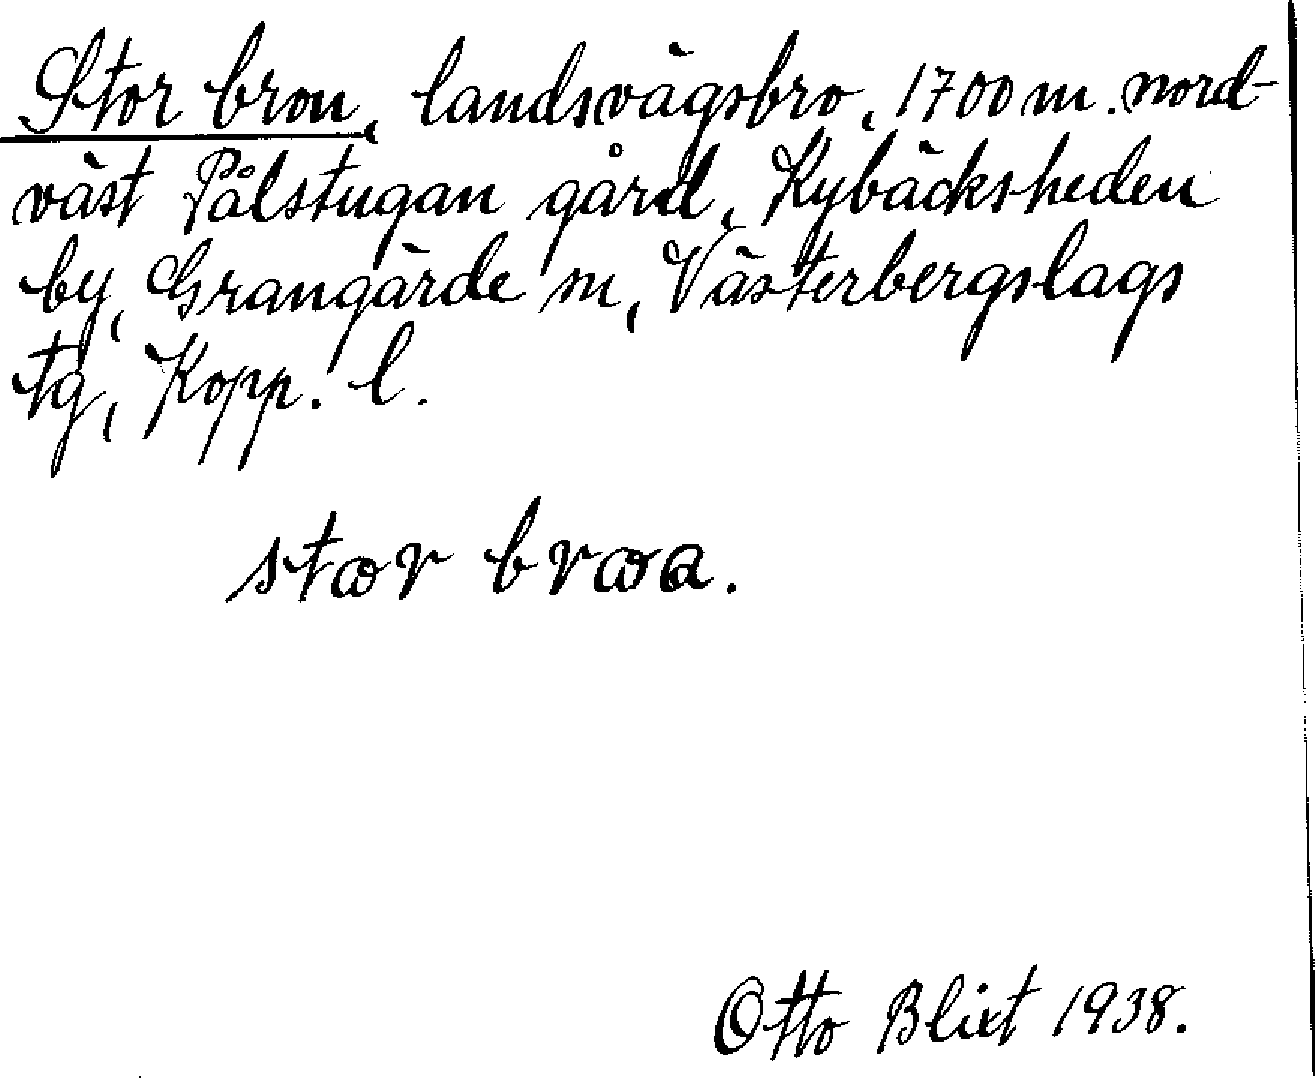 Stor bron, landsvägsbro, 1700 m. nord-
väst Pålstugan gård, Kybäcksheden
by, Grangärde sn, Västerbergslags
tg, Kopp. l.
stær bræa.
Otto Blixt 1938.